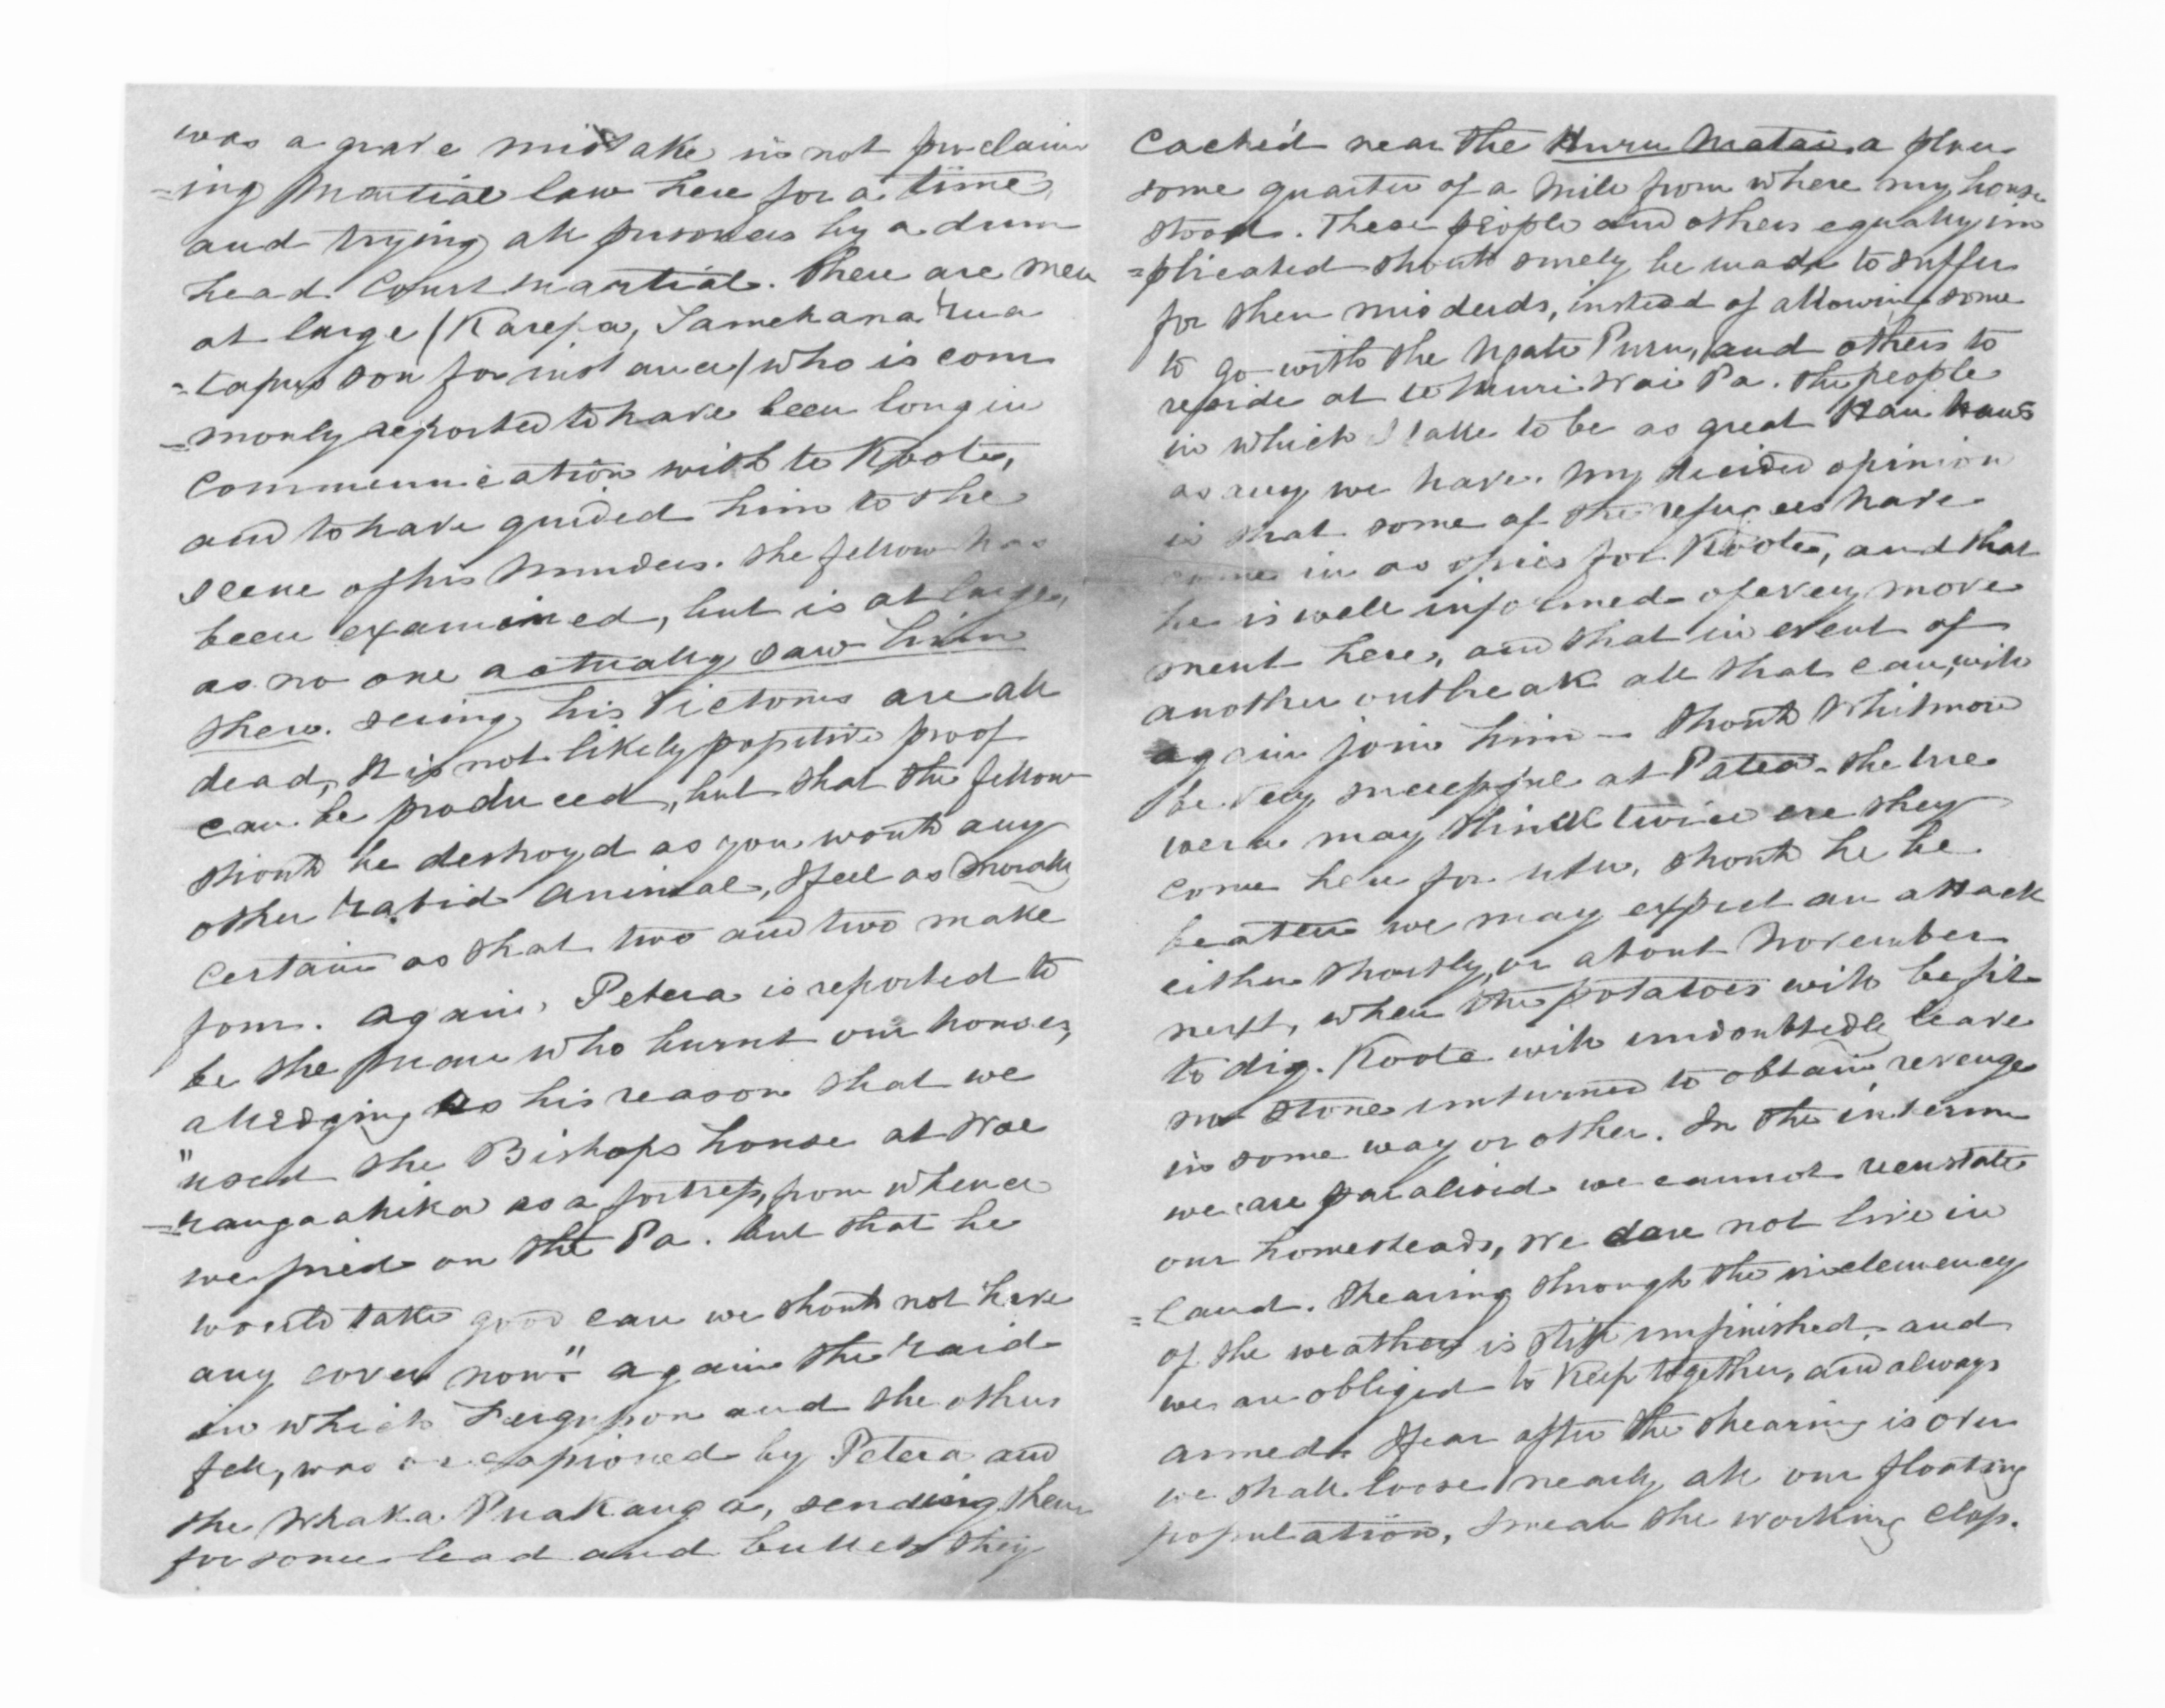 was a grave mistake in not proclaim
=ing Martial law here for a time,
and trying all prisoners by a drum
head Court martial. There are men
at large (Karepa, Tamehana Rua
=tapus son for instance) who is com
=monly reported to have been long in
communication with te Kooti,
and to have guided him to the
scene of his Murders. The fellow has
been examined, but is at large,
as no one actually saw him
there. seeing his Victoms are all
dead, It is not likely positive proof
can be produced, but that the fellow
should be destroyd as you would any
other rabid animal, I feel as morally
certain as that two and two make
four. again, Petera is reported to
be the man who burnt our houses,
alledging as his reason that we
"used the Bishops house at Wae
=rangaahika as a fortress, from whence
we fired on the Pa. but that he
would take good care we should not have
any cover now." again the raid
in which Fergusson and the others
fell, was occasioned by Petera and
the Whaka Puakanga, sending them
for some lead and bullets they
Cache'd near the Huru Matai, a place
some quarter of a Mile from where my house
stood. These people and others equally im
=plicated should surely be made to suffer
for their misdeeds, instead of allowing some
to go with the Ngati Puru, and others to
reside at te Muri Wai Pa. the people
in which I take to be as great Hau haus
as any we have. My decided opinion
is that some of the refugees have
come in as spies for Kooti, and that
he is well informed of every move
ment here, and that in event of
another outbreak all that can, will
again join him – Should Whitmore
be very successful at Patea – the Ure
wera may think twice ere they
come here for utu, should he be
beaten we may expect an attack
either shortly, or about November
next, when the potatoes will be fit
to dig. Koote will undoubtedly leave
no stone unturned to obtain revenge
in some way or other. In the interim
we are paralised we cannot reenstate
our homesteads, we dare not live in
=land. Shearing through the inclemency
of the weather is still unfinished, and
we are obliged to keep together, and always
armed. I fear after the shearing is over
we shall loose nearly all our floating
population, I mean the working class.